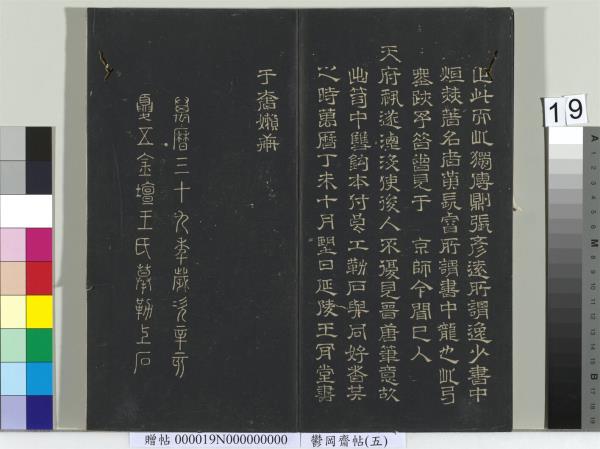 止此而此獨傳鼎張彥遠所謂逸少書中
烜赫著名者黃長睿所謂書中龍也此弓
墨跡予昔嘗見于 京師今聞已入
天府祕遂湮沒使後人不復見晉唐筆意故
出笥中雙鈎本付良工勒石與同好者共
之時萬曆丁未十月望日延陵王肎堂書
于鬱岡齋
萬曆三十九年歲次辛亥
夏五金壇王氏摹勒上石
19
贈帖 000019N000000000 鬱岡齋帖(五)